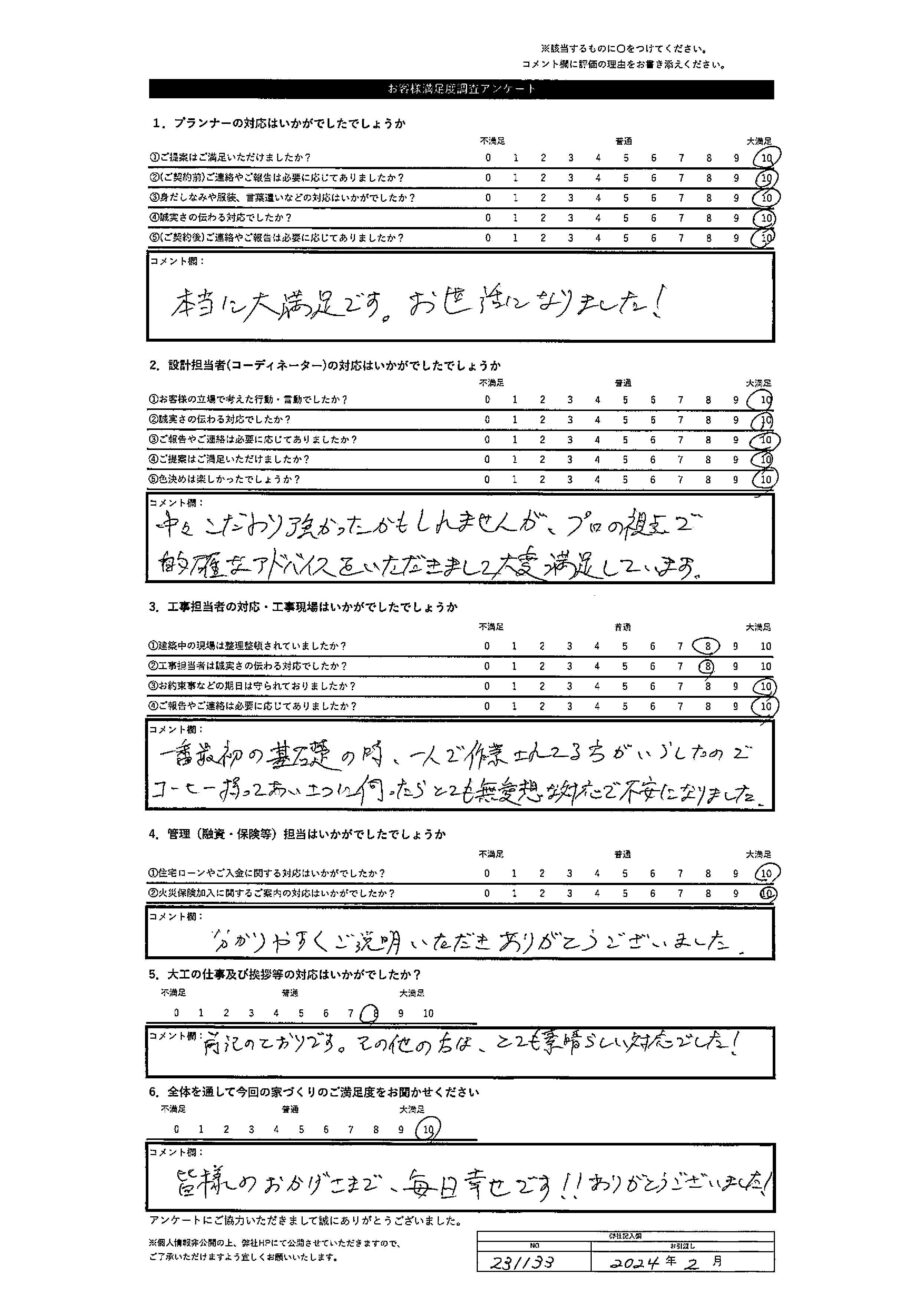 ※該当するものに〇をつけてください。
コメント欄に評価の理由をお書き添えください。
お客様満足度調査アンケート
1．プランナーの対応はいかがでしたでしょうか
不満足 普通 大満足
①ご提案はご満足いただけましたか？ 0 1 2 3 4 5 6 7 8 9 10
②(ご契約前)ご連絡やご報告は必要に応じてありましたか？ 0 1 2 3 4 5 6 7 8 9 10
③身だしなみや服装、言葉遣いなどの対応はいかがでしたか？ 0 1 2 3 4 5 6 7 8 9 10
④誠実さの伝わる対応でしたか？ 0 1 2 3 4 5 6 7 8 9 10
⑤(ご契約後)ご連絡やご報告は必要に応じてありましたか？ 0 1 2 3 4 5 6 7 8 9 10
コメント欄：
本当に大満足です。お世話になりました！
2．設計担当者(コーディネーター)の対応はいかがでしたでしょうか
不満足 普通 大満足
①お客様の立場で考えた行動・言動でしたか？ 0 1 2 3 4 5 6 7 8 9 10
②誠実さの伝わる対応でしたか？ 0 1 2 3 4 5 6 7 8 9 10
③ご報告やご連絡は必要に応じてありましたか？ 0 1 2 3 4 5 6 7 8 9 10
④ご提案はご満足いただけましたか？ 0 1 2 3 4 5 6 7 8 9 10
⑤色決めは楽しかったでしょうか？ 0 1 2 3 4 5 6 7 8 9 10
コメント欄：
中々こだわり強かったかもしれませんが、プロの視点で
的確なアドバイスをいただきまして大変満足しています。
3．工事担当者の対応・工事現場はいかがでしたでしょうか
不満足 普通 大満足
①建築中の現場は整理整頓されていましたか？ 0 1 2 3 4 5 6 7 8 9 10
②工事担当者は誠実さの伝わる対応でしたか？ 0 1 2 3 4 5 6 7 8 9 10
③お約束事などの期日は守られておりましたか？ 0 1 2 3 4 5 6 7 8 9 10
④ご報告やご連絡は必要に応じてありましたか？ 0 1 2 3 4 5 6 7 8 9 10
コメント欄：
一番最初の基礎の時、一人で作業されてる方がいらしたので
コーヒー持ってあいさつに伺ったらとても無愛想な対応で不安になりました．
4．管理（融資・保険等）担当はいかがでしたでしょうか
不満足 普通 大満足
①住宅ローンやご入金に関する対応はいかがでしたか？ 0 1 2 3 4 5 6 7 8 9 10
②火災保険加入に関するご案内の対応はいかがでしたか？ 0 1 2 3 4 5 6 7 8 9 10
コメント欄：
分かりやすくご説明いただきありがとうございました．
5．大工の仕事及び挨拶等の対応はいかがでしたか？
不満足 普通 大満足
0 1 2 3 4 5 6 7 8 9 10
コメント欄：前記のとおりです。その他の方は、とても素晴らしい対応でした！
6．全体を通して今回の家づくりのご満足度をお聞かせください
不満足 普通 大満足
0 1 2 3 4 5 6 7 8 9 10
コメント欄：
皆様のおかげさまで、毎日幸せです！！ありがとうございました！
アンケートにご協力いただきまして誠にありがとうございました。
※個人情報非公開の上、弊社HPにて公開させていただきますので、
ご了承いただけますよう宜しくお願いいたします。
弊社記入欄
NO お引渡し
231133 2024年 2 月